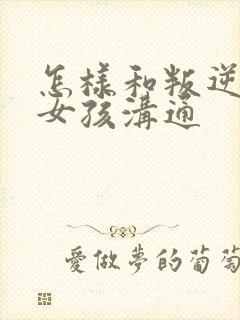 怎樣和叛逆
女孩溝通
愛做夢的葡萄